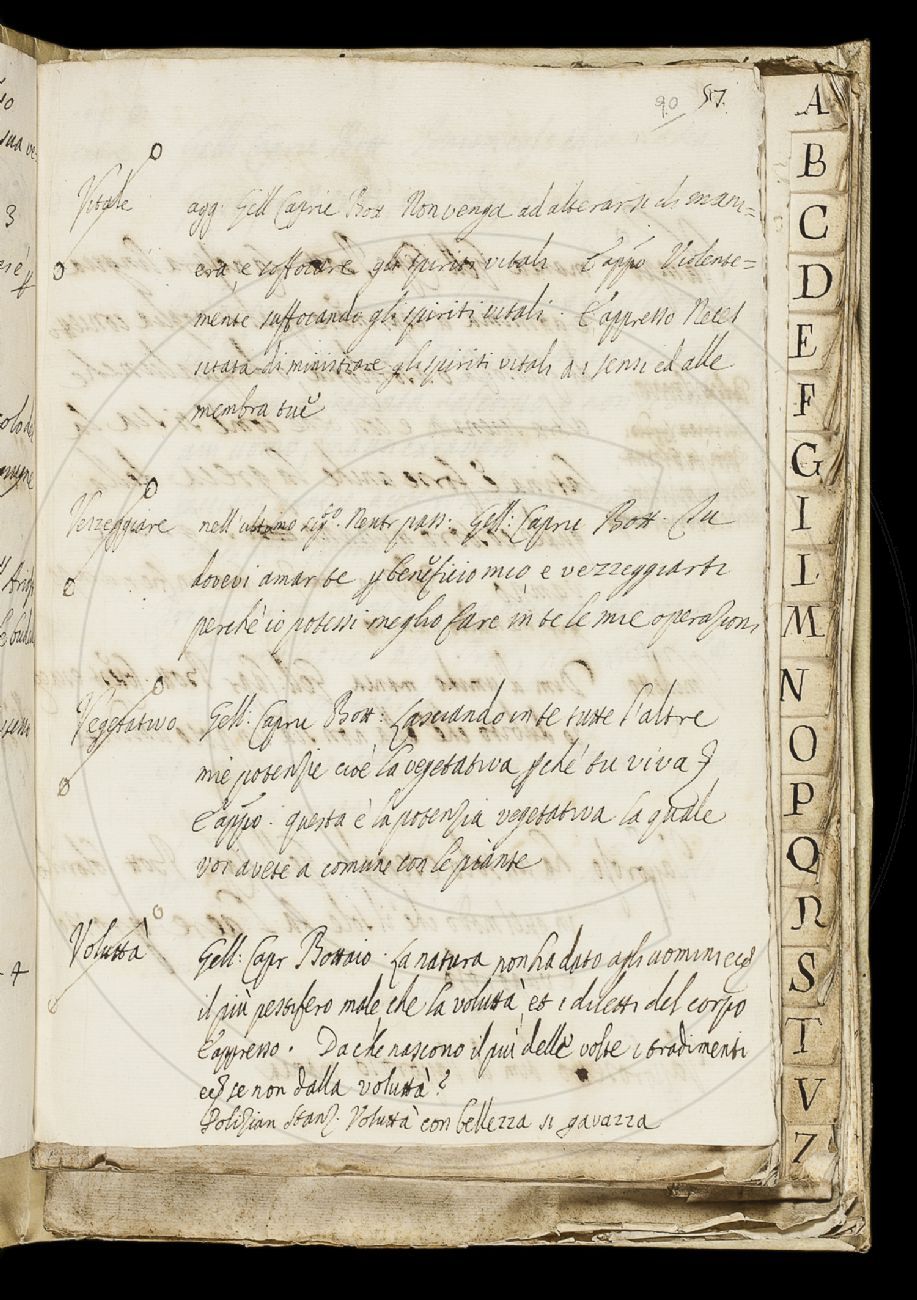 90 57.
Vitale agg: Gell Capric Bott Non venga ad alterarsi di mani=
era e soffocare gli spiriti vitali E appo Violente=
mente suffocando gli spiriti vitali. E appresso Neces
sitata di ministrare gli spiriti vitali a i sensi ed alle
membra tue
Vezzeggiare nell'ultimo sigto. Neutr pass: Gell: Capric Bott. Tu
dovevi amarte p beneficio mio e vezzeggiarti
perchè io potessi meglio fare in te le mie operazioni
Vegetativo Gell: Capric Bott: Lasciando in te tutte l'altre
mie potenzie cioè la vegetativa pchè tu viva
E appo: questa è la potenzia vegetativa la quale
voi avete a comune con le piante
Voluttà Gell: Capr Bottaio: La natura non ha dato agli uomini
il più pestifero male che la voluttà, et i diletti del corpo
E appresso. Da che nascono il più delle volte i tradimenti
se non dalla voluttà?
Polizian Stanz. Voluttà con bellezza si gavazza
A
B
C
D
E
F
G
I
L
M
N
O
P
Q
R
S
T
V
Z